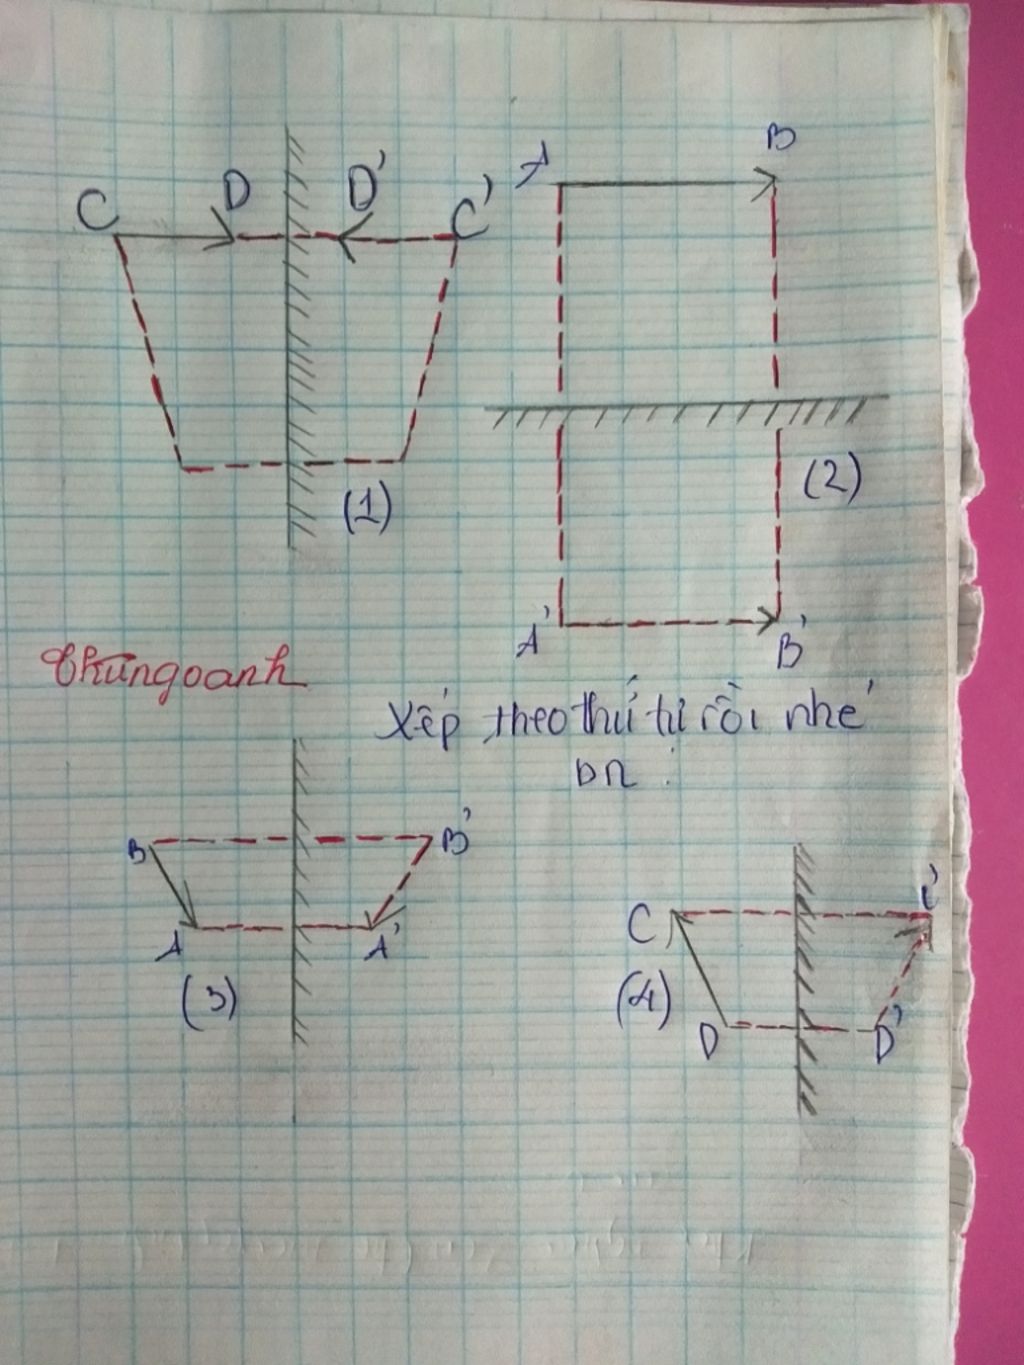 C D D' C'
A B
(1)
(2)
A' B'
Thungoanh
Xếp theo thứ tự rồi nhé
bn :
B B'
A A'
(3)
C C'
(4)
D D'